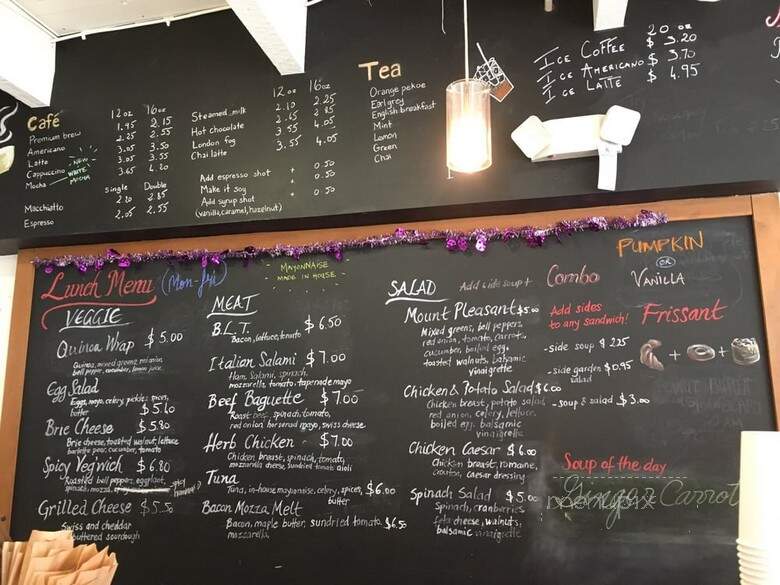 Café
12oz 16oz
Premium brew 1.95 2.15
Americano 2.25 2.55
Latte 3.05 3.50
Cappuccino 3.05 3.55
Mocha 3.65 4.20
NEW
WHITE
MOCHA
Single Double
Macchiatto 2.20 2.85
Espresso 2.05 2.55
12oz 16oz
Steamed milk 2.10 2.25
Hot chocolate 2.65 2.85
London fog 3.55 4.05
Chai latte 3.55 4.05
Add espresso shot + 0.50
Make it soy + 0.50
Add syrup shot + 0.50
(vanilla, caramel, hazelnut)
Tea
Orange pekoe
Earl grey
English breakfast
Mint
Lemon
Green
Chai
20 oz
ICE COFFEE $ 3.20
ICE AMERICANO $ 3.70
ICE LATTE $ 4.95
Lunch Menu (Mon-fri)
MAYONNAISE
MADE IN HOUSE
VEGGIE
Quinoa Wrap $5.00
Quinoa, mixed greens,
bell pepper, cucumber, lemon juice
Egg Salad
Eggs, mayo, celery, pickles, spices,
butter $5.60
Brie Cheese $5.80
Brie cheese, toasted walnut, lettuce
bartlette pear, cucumber, tomato
Spicy Vegwich $6.80
Roasted bell pepper, eggplant,
spinach, mozza, spicy
hummus?
Grilled Cheese $5.50
Swiss and cheddar
buttered sourdough
MEAT
B.L.T. $6.50
Bacon, lettuce, tomato
Italian Salami $7.00
Ham, salami, spinach,
mozzarella, tomato, tapenade mayo
Beef Baguette $7.00
Roast beef, spinach, tomato,
red onion, horserad mayo, swiss cheese
Herb Chicken - $7.00
Chicken breast, spinach, tomato,
mozzarella cheese, sundried tomato aioli
Tuna
Tuna, in-house mayonaise, celery, spices, $6.00
butter
Bacon Mozza Melt
Bacon, maple butter, sundried tomato $6.50
mozzarella,
SALAD
Add side soup +
Mount Pleasant $5.00
Mixed greens, bell peppers
red onion, tomato, carrots,
cucumber, boiled egg,
toasted walnuts, balsamic
vinaigrette
Chicken & Potato Salad $6.00
Chicken breast, potato salad
red onion, celery, lettuce,
boiled egg, balsamic
vinaigrette
Chicken Caesar $6.00
Chicken breast, romaine,
crouton, caesar dressing
Spinach Salad $5.00
Spinach, cranberries
feta cheese, walnuts,
balsamic vinaigrette
Combo
Add sides
to any sandwich!
- side soup $2.25
- side garden $0.95
salad
- soup & salad $3.00
PUMPKIN
OR
VANILLA
Frissant
+ +
Soup of the day
Ginger Carrot
menupix